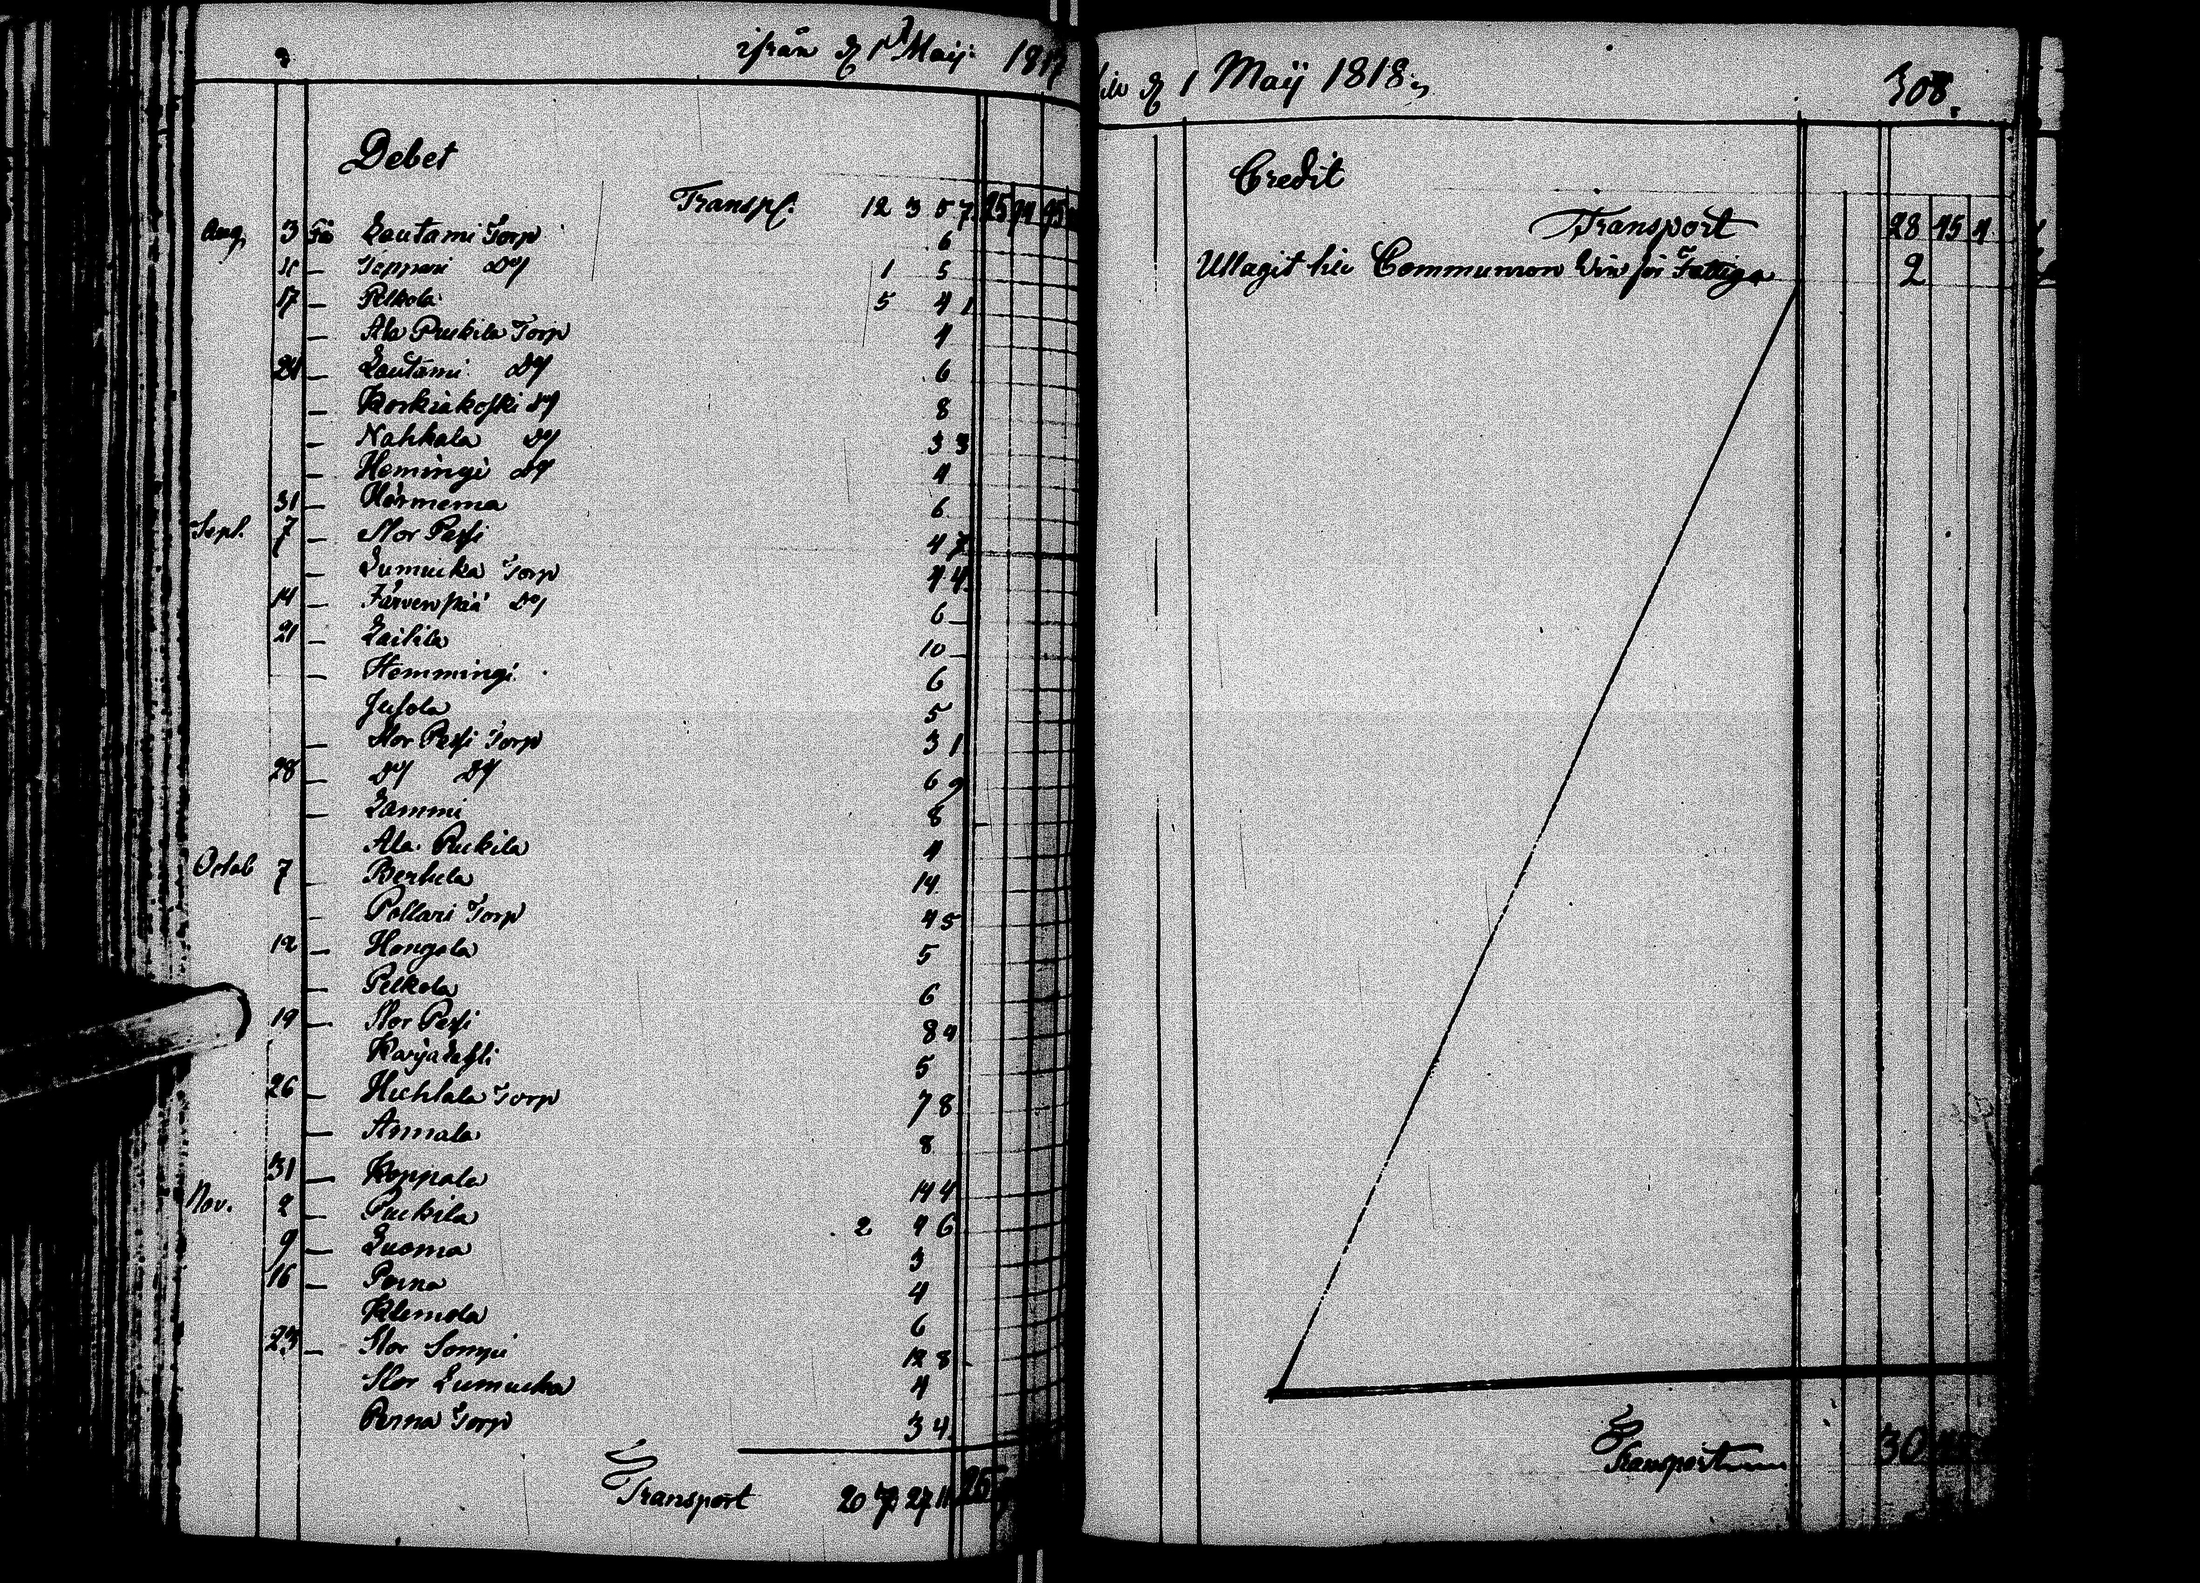 ifrån d 1 Maij: 1817
Debet
Transp. 12 3 5 7 25
Aug. 3 Lautami Torp 6
Toppari D:o 1 5
17 – Pelkola 5 4 1
– Ala Puckila Torp 4
24 – Lautami D:o 6
– Korkiakoski D:o 8
– Nahkala D:o 3 3
– Hemingi D:o 4
31 – Härmemä 6
Sept. 7 – Stor Passi 4 7
– Lumucka Torp 4 4
14 – Järvenpää D:o 6
21 – Laitila 10
– Hemmingi 6
Jusola 5
– Stor Passi Torp 3 1
28 – D:o D:o 6 9
– Lammi 8
Ala Puckila 4
Octob 7 – Bertula 14
– Pollari Torp 4 5
12 – Hongola 5
– Pelkola 6
19 – Stor Passi 8 4
Karjalaschi 5
26 – Huchtala Torp 7 8
– Annala 8
31 – Koppala 14 4
Nov. 2 – Puckila 2 4 6
9 – Luoma 3
16 – Perna 4
Klemola 6
23 – Stor Sompi 12 8
Stor Lumucka 4
Perna Torp 3 4
Transport 20 27 11 25
d 1 Maij 1818
308.
Credit
Transport 28 45 4
Uttagit till Communion Vin för Fattiga 2
Transport 30